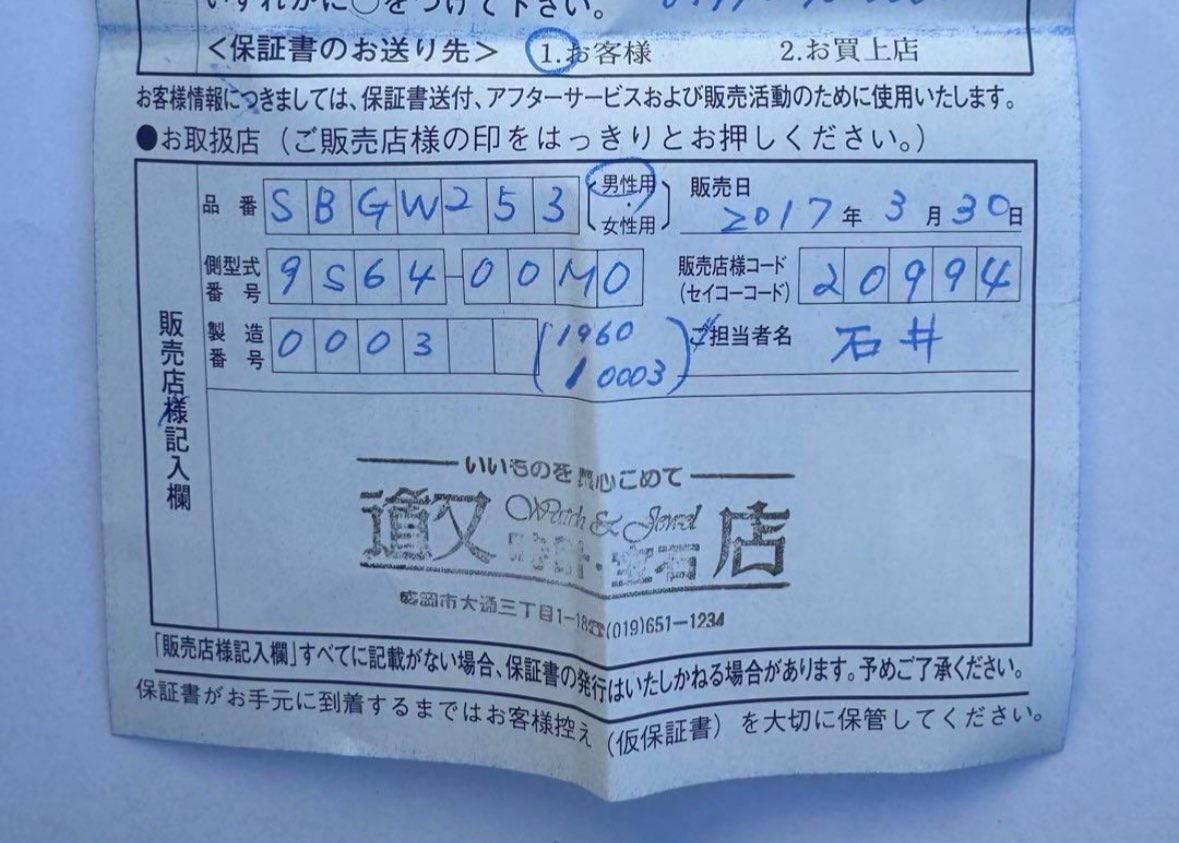 いずれかに○をつけて下さい。
<保証書のお送り先> 1.お客様 2.お買上店
お客様情報につきましては、保証書送付、アフターサービスおよび販売活動のために使用いたします。
●お取扱店（ご販売店様の印をはっきりとお押しください。）
販売店様記入欄
品番 SBGW253 (男性用・女性用) 販売日 2017年3月30日
側型式番号 9S64-00M0 販売店様コード(セイコーコード) 20994
製造番号 0003 (1960 / 0003) ご担当者名 石井
いいものを 心こめて
道又 Watch & Jewel 時計・宝石 店
盛岡市大通三丁目1-18☎(019)651-1234
「販売店様記入欄」すべてに記載がない場合、保証書の発行はいたしかねる場合があります。予めご了承ください。
保証書がお手元に到着するまではお客様控え（仮保証書）を大切に保管してください。